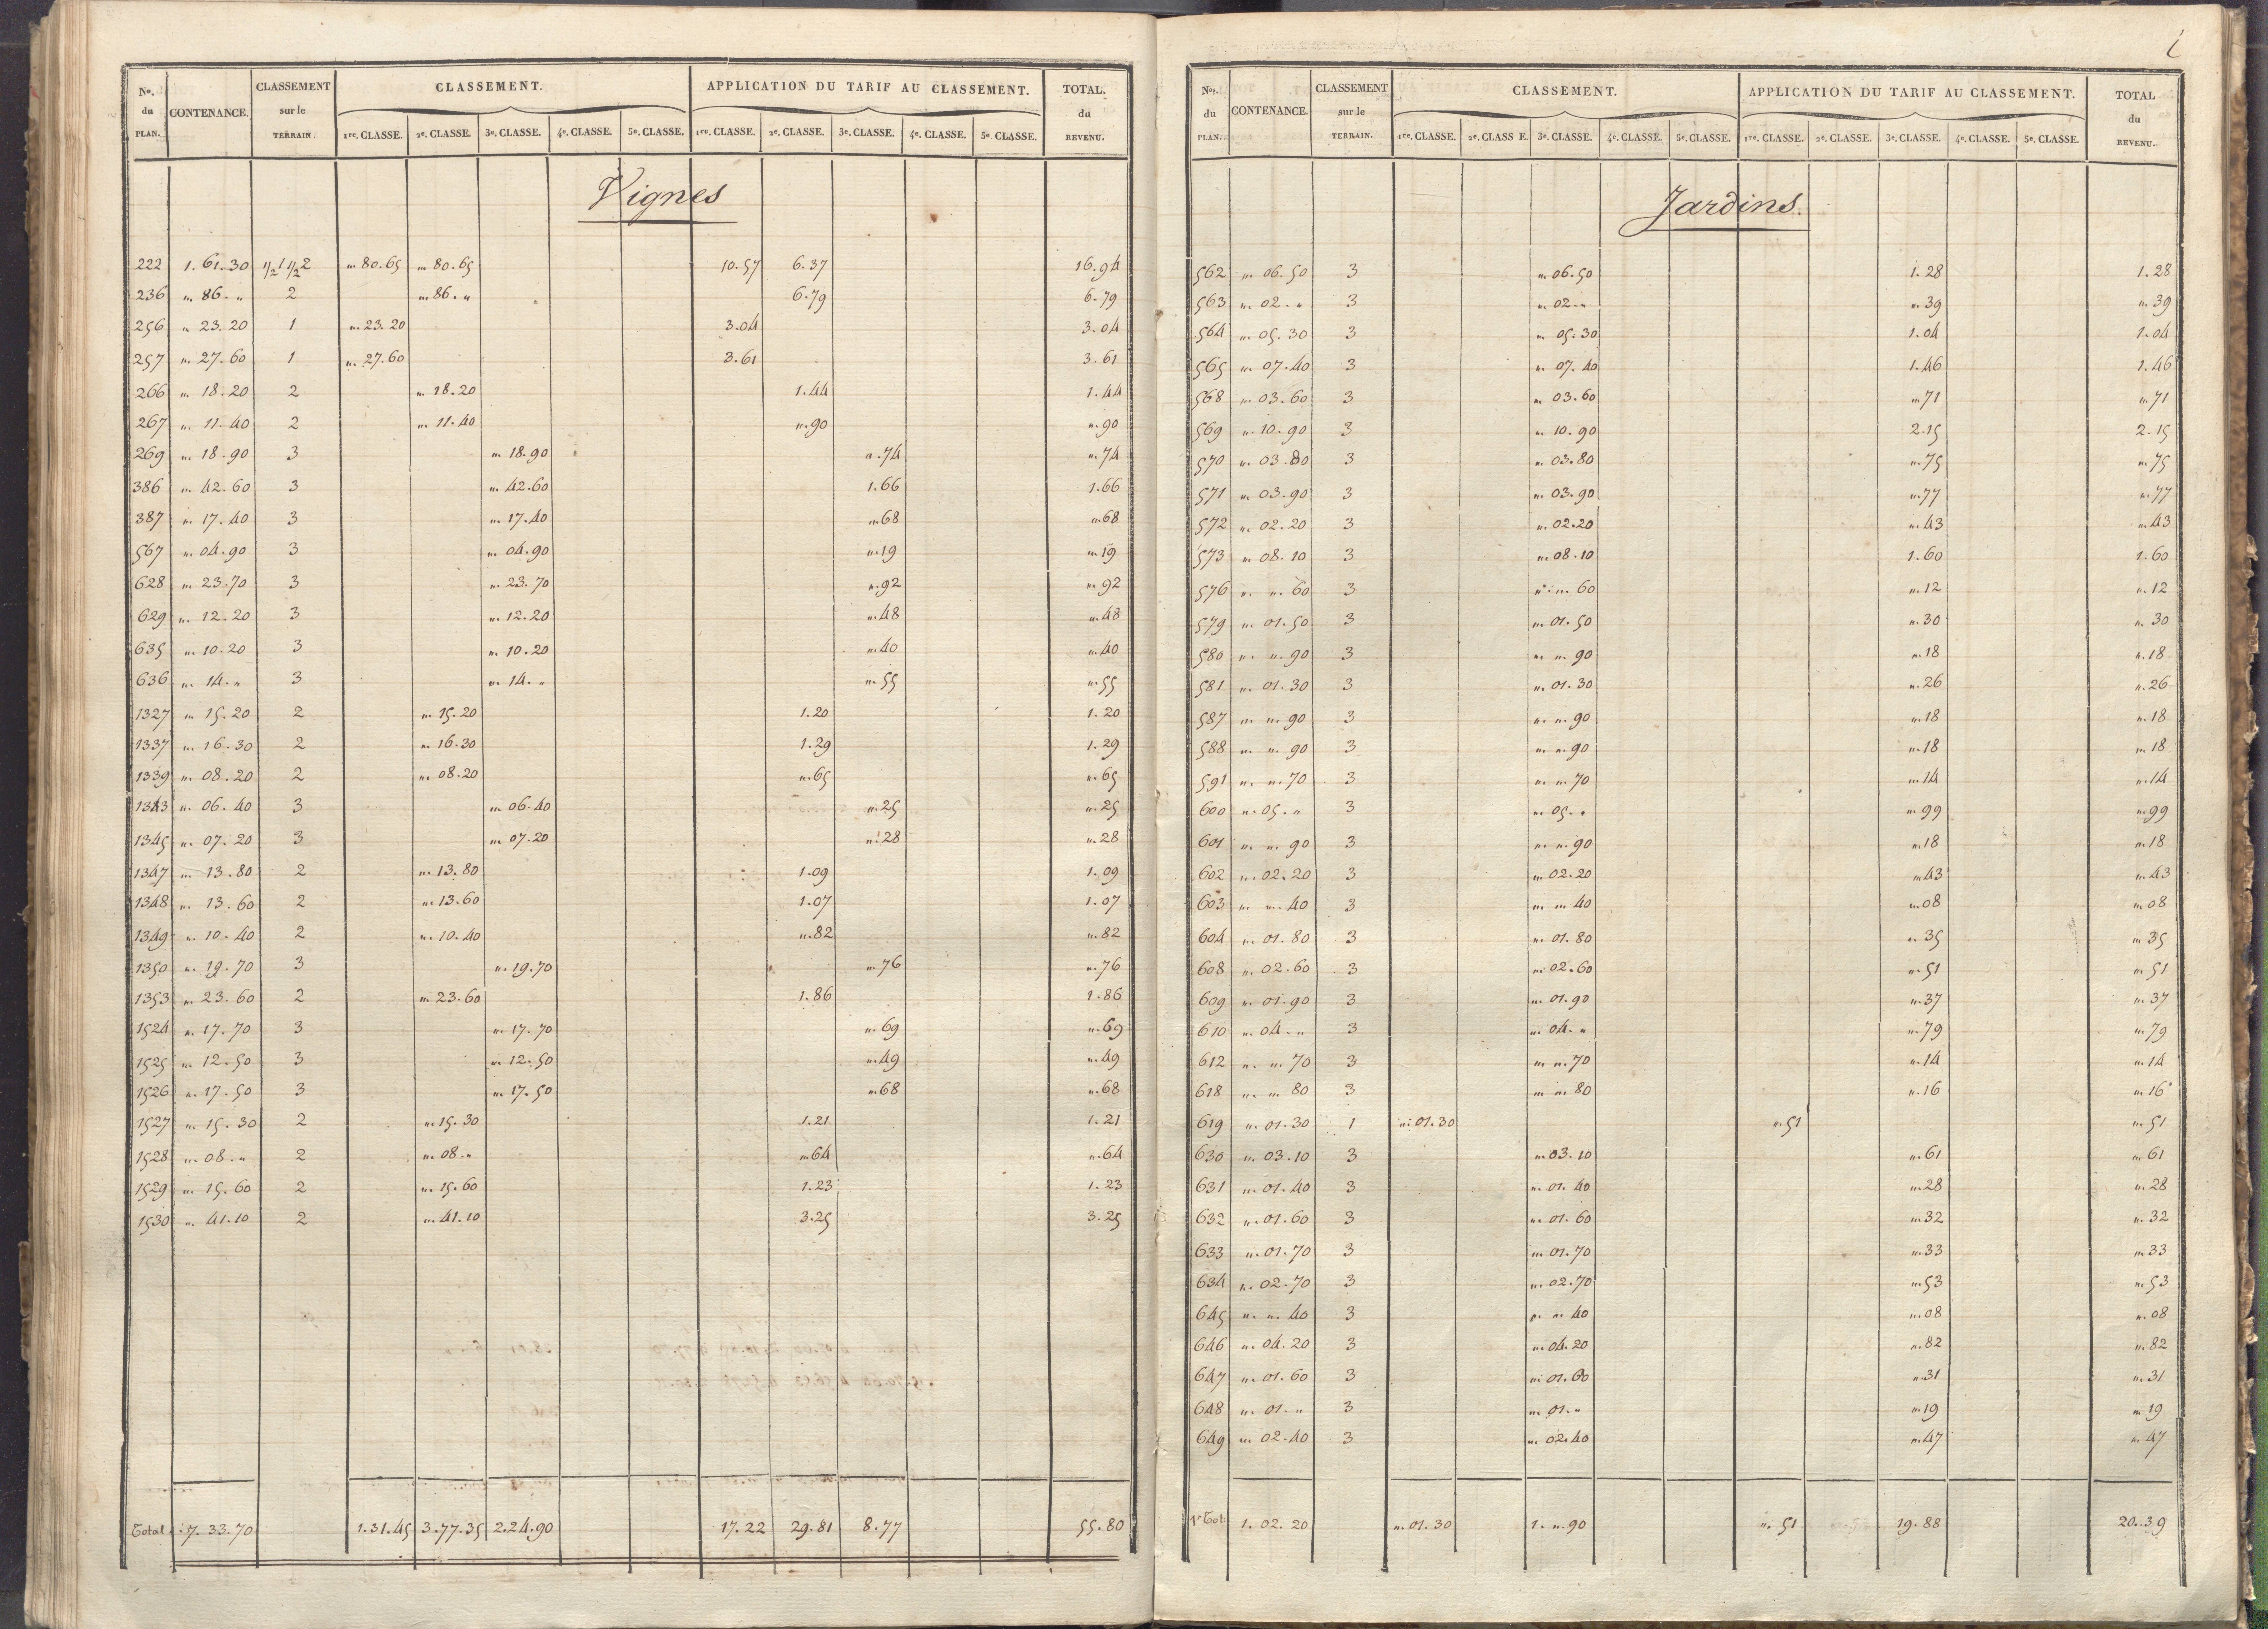 No. du PLAN. CONTENANCE. CLASSEMENT sur le TERRAIN. CLASSEMENT. APPLICATION DU TARIF AU CLASSEMENT. TOTAL. du REVENU.
1re. CLASSE. 2e. CLASSE. 3e. CLASSE. 4e. CLASSE. 5e. CLASSE. 1re. CLASSE. 2e. CLASSE. 3e. CLASSE. 4e. CLASSE. 5e. CLASSE.
Vignes
222 1. 61. 30 1/2 1 1/2 2 „. 80. 65 „. 80. 65 10. 57 6. 37 16. 94
236 „. 86. „ 2 „. 86. „ 6. 79 6. 79
256 „. 23. 20 1 „. 23. 20 3. 04 3. 04
257 „. 27. 60 1 „. 27. 60 3. 61 3. 61
266 „. 18. 20 2 „. 18. 20 1. 44 1. 44
267 „. 11. 40 2 „. 11. 40 „. 90 „. 90
269 „. 18. 90 3 „. 18. 90 „. 74 „. 74
386 „. 42. 60 3 „. 42. 60 1. 66 1. 66
387 „. 17. 40 3 „. 17. 40 „. 68 „. 68
567 „. 04. 90 3 „. 04. 90 „. 19 „. 19
628 „. 23. 70 3 „. 23. 70 „. 92 „. 92
629 „. 12. 20 3 „. 12. 20 „. 48 „. 48
635 „. 10. 20 3 „. 10. 20 „. 40 „. 40
636 „. 14. „ 3 „. 14. „ „. 55 „. 55
1327 „. 15. 20 2 „. 15. 20 1. 20 1. 20
1337 „. 16. 30 2 „. 16. 30 1. 29 1. 29
1339 „. 08. 20 2 „. 08. 20 „. 65 „. 65
1343 „. 06. 40 3 „. 06. 40 „. 25 „. 25
1345 „. 07. 20 3 „. 07. 20 „. 28 „. 28
1347 „. 13. 80 2 „. 13. 80 1. 09 1. 09
1348 „. 13. 60 2 „. 13. 60 1. 07 1. 07
1349 „. 10. 40 2 „. 10. 40 „. 82 „. 82
1350 „. 19. 70 3 „. 19. 70 „. 76 „. 76
1353 „. 23. 60 2 „. 23. 60 1. 86 1. 86
1524 „. 17. 70 3 „. 17. 70 „. 69 „. 69
1525 „. 12. 50 3 „. 12. 50 „. 49 „. 49
1526 „. 17. 50 3 „. 17. 50 „. 68 „. 68
1527 „. 15. 30 2 „. 15. 30 1. 21 1. 21
1528 „. 08. „ 2 „. 08. „ „. 64 „. 64
1529 „. 15. 60 2 „. 15. 60 1. 23 1. 23
1530 „. 41. 10 2 „. 41. 10 3. 25 3. 25
Total. 7. 33. 70 1. 31. 45 3. 77. 35 2. 24. 90 17. 22 29. 81 8. 77 55. 80
Nos. du PLAN. CONTENANCE. CLASSEMENT sur le TERRAIN. CLASSEMENT. APPLICATION DU TARIF AU CLASSEMENT. TOTAL du REVENU.
1re. CLASSE. 2e. CLASSE. 3e. CLASSE. 4e. CLASSE. 5e. CLASSE. 1re. CLASSE. 2e. CLASSE. 3e. CLASSE. 4e. CLASSE. 5e. CLASSE.
Jardins.
562 „. 06. 50 3 „. 06. 50 1. 28 1. 28
563 „. 02. „ 3 „. 02. „ „. 39 „. 39
564 „. 05. 30 3 „. 05. 30 1. 04 1. 04
565 „. 07. 40 3 „. 07. 40 1. 46 1. 46
568 „. 03. 60 3 „. 03. 60 „. 71 „. 71
569 „. 10. 90 3 „. 10. 90 2. 15 2. 15
570 „. 03. 80 3 „. 03. 80 „. 75 „. 75
571 „. 03. 90 3 „. 03. 90 „. 77 „. 77
572 „. 02. 20 3 „. 02. 20 „. 43 „. 43
573 „. 08. 10 3 „. 08. 10 1. 60 1. 60
576 „. „. 60 3 „. „. 60 „. 12 „. 12
579 „. 01. 50 3 „. 01. 50 „. 30 „. 30
580 „. „. 90 3 „. „. 90 „. 18 „. 18
581 „. 01. 30 3 „. 01. 30 „. 26 „. 26
587 „. „. 90 3 „. „. 90 „. 18 „. 18
588 „. „. 90 3 „. „. 90 „. 18 „. 18
591 „. „. 70 3 „. „. 70 „. 14 „. 14
600 „. 05. „ 3 „. 05. „ „. 99 „. 99
601 „. „. 90 3 „. „. 90 „. 18 „. 18
602 „. 02. 20 3 „. 02. 20 „. 43 „. 43
603 „. „. 40 3 „. „. 40 „. 08 „. 08
604 „. 01. 80 3 „. 01. 80 „. 35 „. 35
608 „. 02. 60 3 „. 02. 60 „. 51 „. 51
609 „. 01. 90 3 „. 01. 90 „. 37 „. 37
610 „. 04. „ 3 „. 04. „ „. 79 „. 79
612 „. „. 70 3 „. „. 70 „. 14 „. 14
618 „. „. 80 3 „. „. 80 „. 16 „. 16
619 „. 01. 30 1 „. 01. 30 „. 51 „. 51
630 „. 03. 10 3 „. 03. 10 „. 61 „. 61
631 „. 01. 40 3 „. 01. 40 „. 28 „. 28
632 „. 01. 60 3 „. 01. 60 „. 32 „. 32
633 „. 01. 70 3 „. 01. 70 „. 33 „. 33
634 „. 02. 70 3 „. 02. 70 „. 53 „. 53
645 „. „. 40 3 „. „. 40 „. 08 „. 08
646 „. 04. 20 3 „. 04. 20 „. 82 „. 82
647 „. 01. 60 3 „. 01. 60 „. 31 „. 31
648 „. 01. „ 3 „. 01. „ „. 19 „. 19
649 „. 02. 40 3 „. 02. 40 „. 47 „. 47
1r Tot. 1. 02. 20 „. 01. 30 1. „. 90 „. 51 19. 88 20. 39